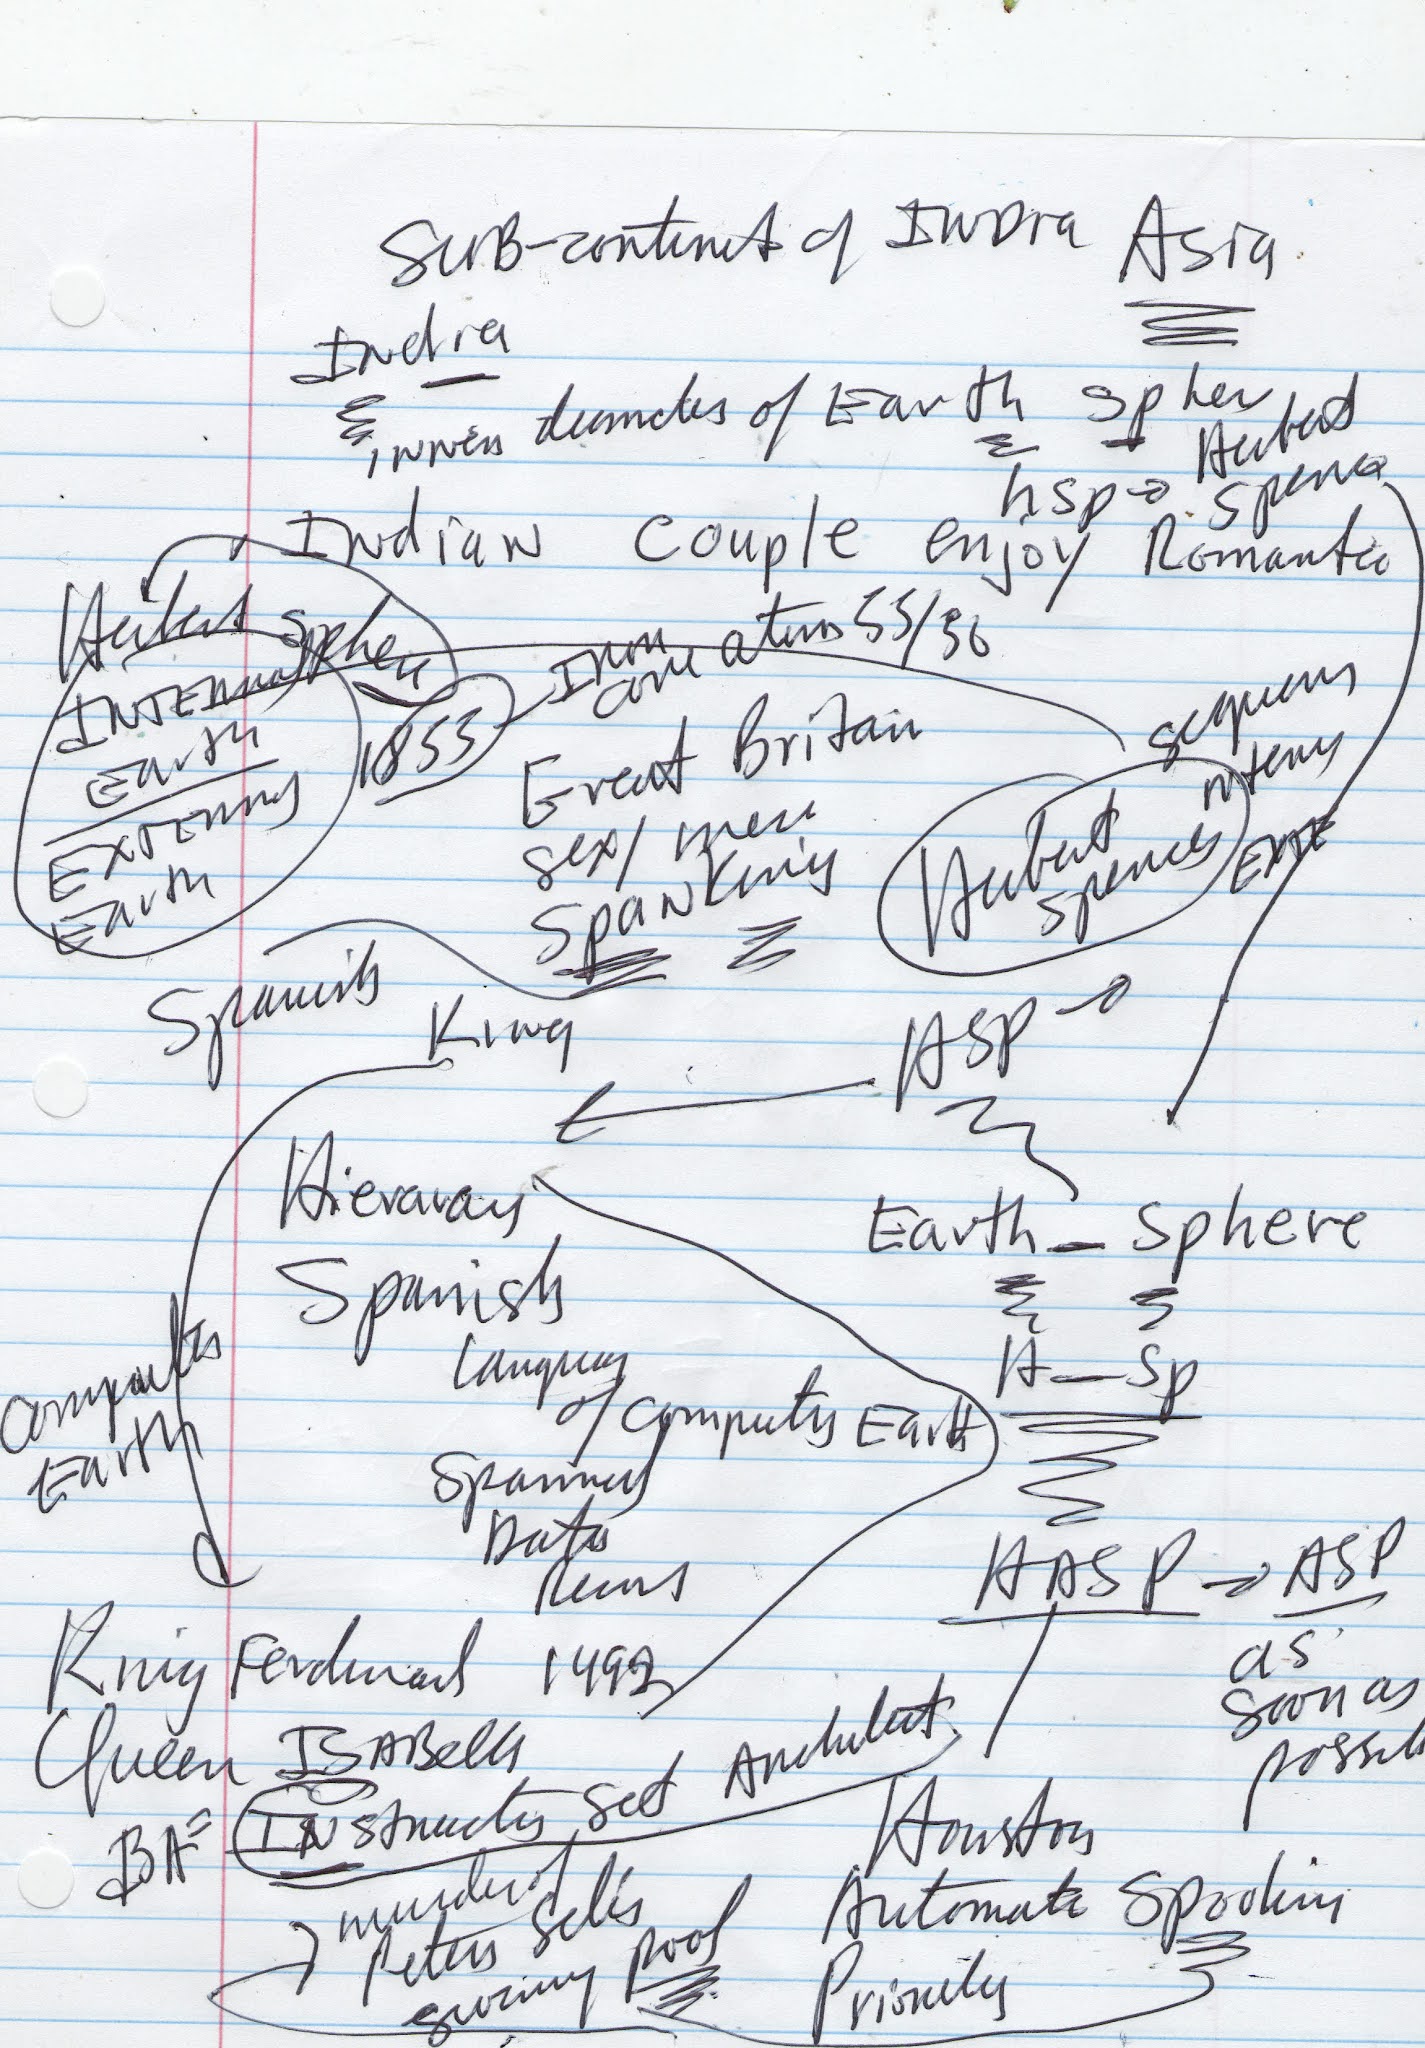 SUB-continet of INDIA Asia
INdia
inner diameter of Earth Sphere
hsp → Herbert Spencer
Indian couple enjoy Romantic
Herbert Sphere
INTERNAL Earth
EXTERNAL Earth
1853
Iron core atoms 55/56
Great Britain
sex/men
SpanKing
Herbert Spencer
Spanish
King
HSP →
Hierarchy
Spanish
Language
of Computer Earth
Data
Computer
Earth
Earth - Sphere
H - Sp
HASP → ASP
as
soon as
possible
King Ferdinand 1492
Queen ISABella
Instruction Set Architect
murder of
Peter
pool
Houston
Automatic Spooling
Priority